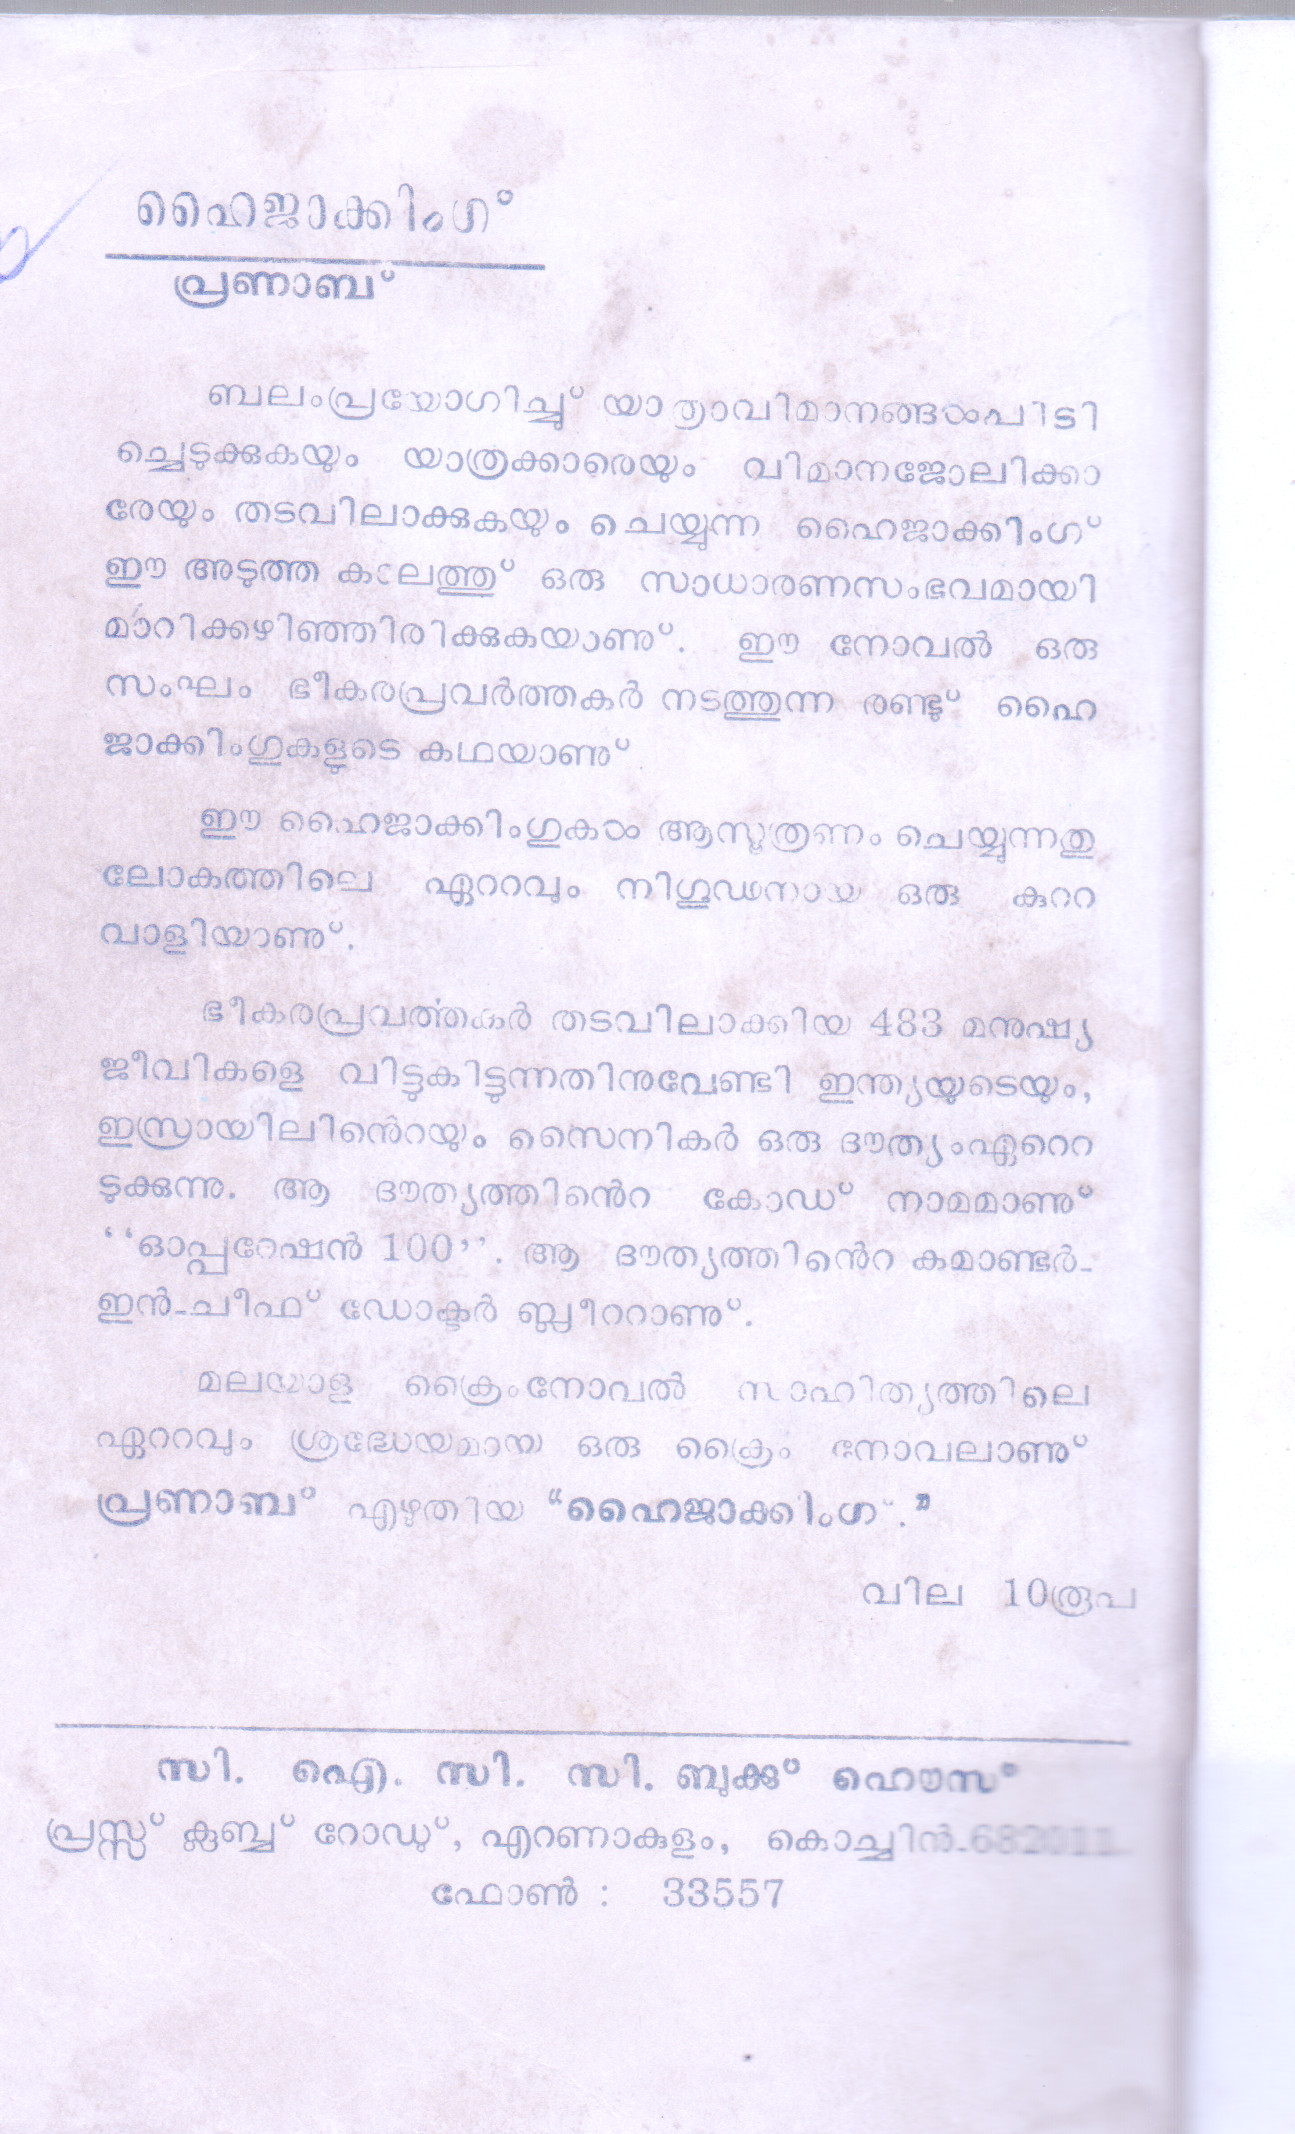 ഹൈജാക്കിംഗ്
പ്രണാബ്
ബലംപ്രയോഗിച്ചു് യാത്രാവിമാനങ്ങൾപിടി
ച്ചെടുക്കുകയും യാത്രക്കാരെയും വിമാനജോലിക്കാ
രേയും തടവിലാക്കുകയും ചെയ്യുന്ന ഹൈജാക്കിംഗ്
ഈ അടുത്ത കാലത്തു് ഒരു സാധാരണസംഭവമായി
മാറിക്കഴിഞ്ഞിരിക്കുകയാണു്. ഈ നോവൽ ഒരു
സംഘം ഭീകരപ്രവർത്തകർ നടത്തുന്ന രണ്ടു് ഹൈ
ജാക്കിംഗുകളുടെ കഥയാണു്
ഈ ഹൈജാക്കിംഗുകൾ ആസൂത്രണം ചെയ്യുന്നതു
ലോകത്തിലെ ഏററവും നിഗൂഢനായ ഒരു കുററ
വാളിയാണു്.
ഭീകരപ്രവർത്തകർ തടവിലാക്കിയ 483 മനുഷ്യ
ജീവികളെ വിട്ടുകിട്ടുന്നതിനുവേണ്ടി ഇന്ത്യയുടെയും,
ഇസ്രായിലിൻെറയും സൈനികർ ഒരു ദൗത്യംഏറെറ
ടുക്കുന്നു. ആ ദൗത്യത്തിൻെറ കോഡ് നാമമാണു്
‘‘ഓപ്പറേഷൻ 100’’. ആ ദൗത്യത്തിൻെറ കമാണ്ടർ-
ഇൻ-ചീഫ് ഡോക്ടർ ബ്ലീററാണു്.
മലയാള ക്രൈംനോവൽ സാഹിത്യത്തിലെ
ഏററവും ശ്രദ്ധേയമായ ഒരു ക്രൈം നോവലാണു്
പ്രണാബ് എഴുതിയ “ഹൈജാക്കിംഗ്.”
വില 10രൂപ
സി. ഐ. സി. സി. ബുക്കു് ഹൌസ്
പ്രസ്സ് ക്ലബ്ബ് റോഡു്, എറണാകുളം, കൊച്ചിൻ-682011
ഫോൺ : 33557